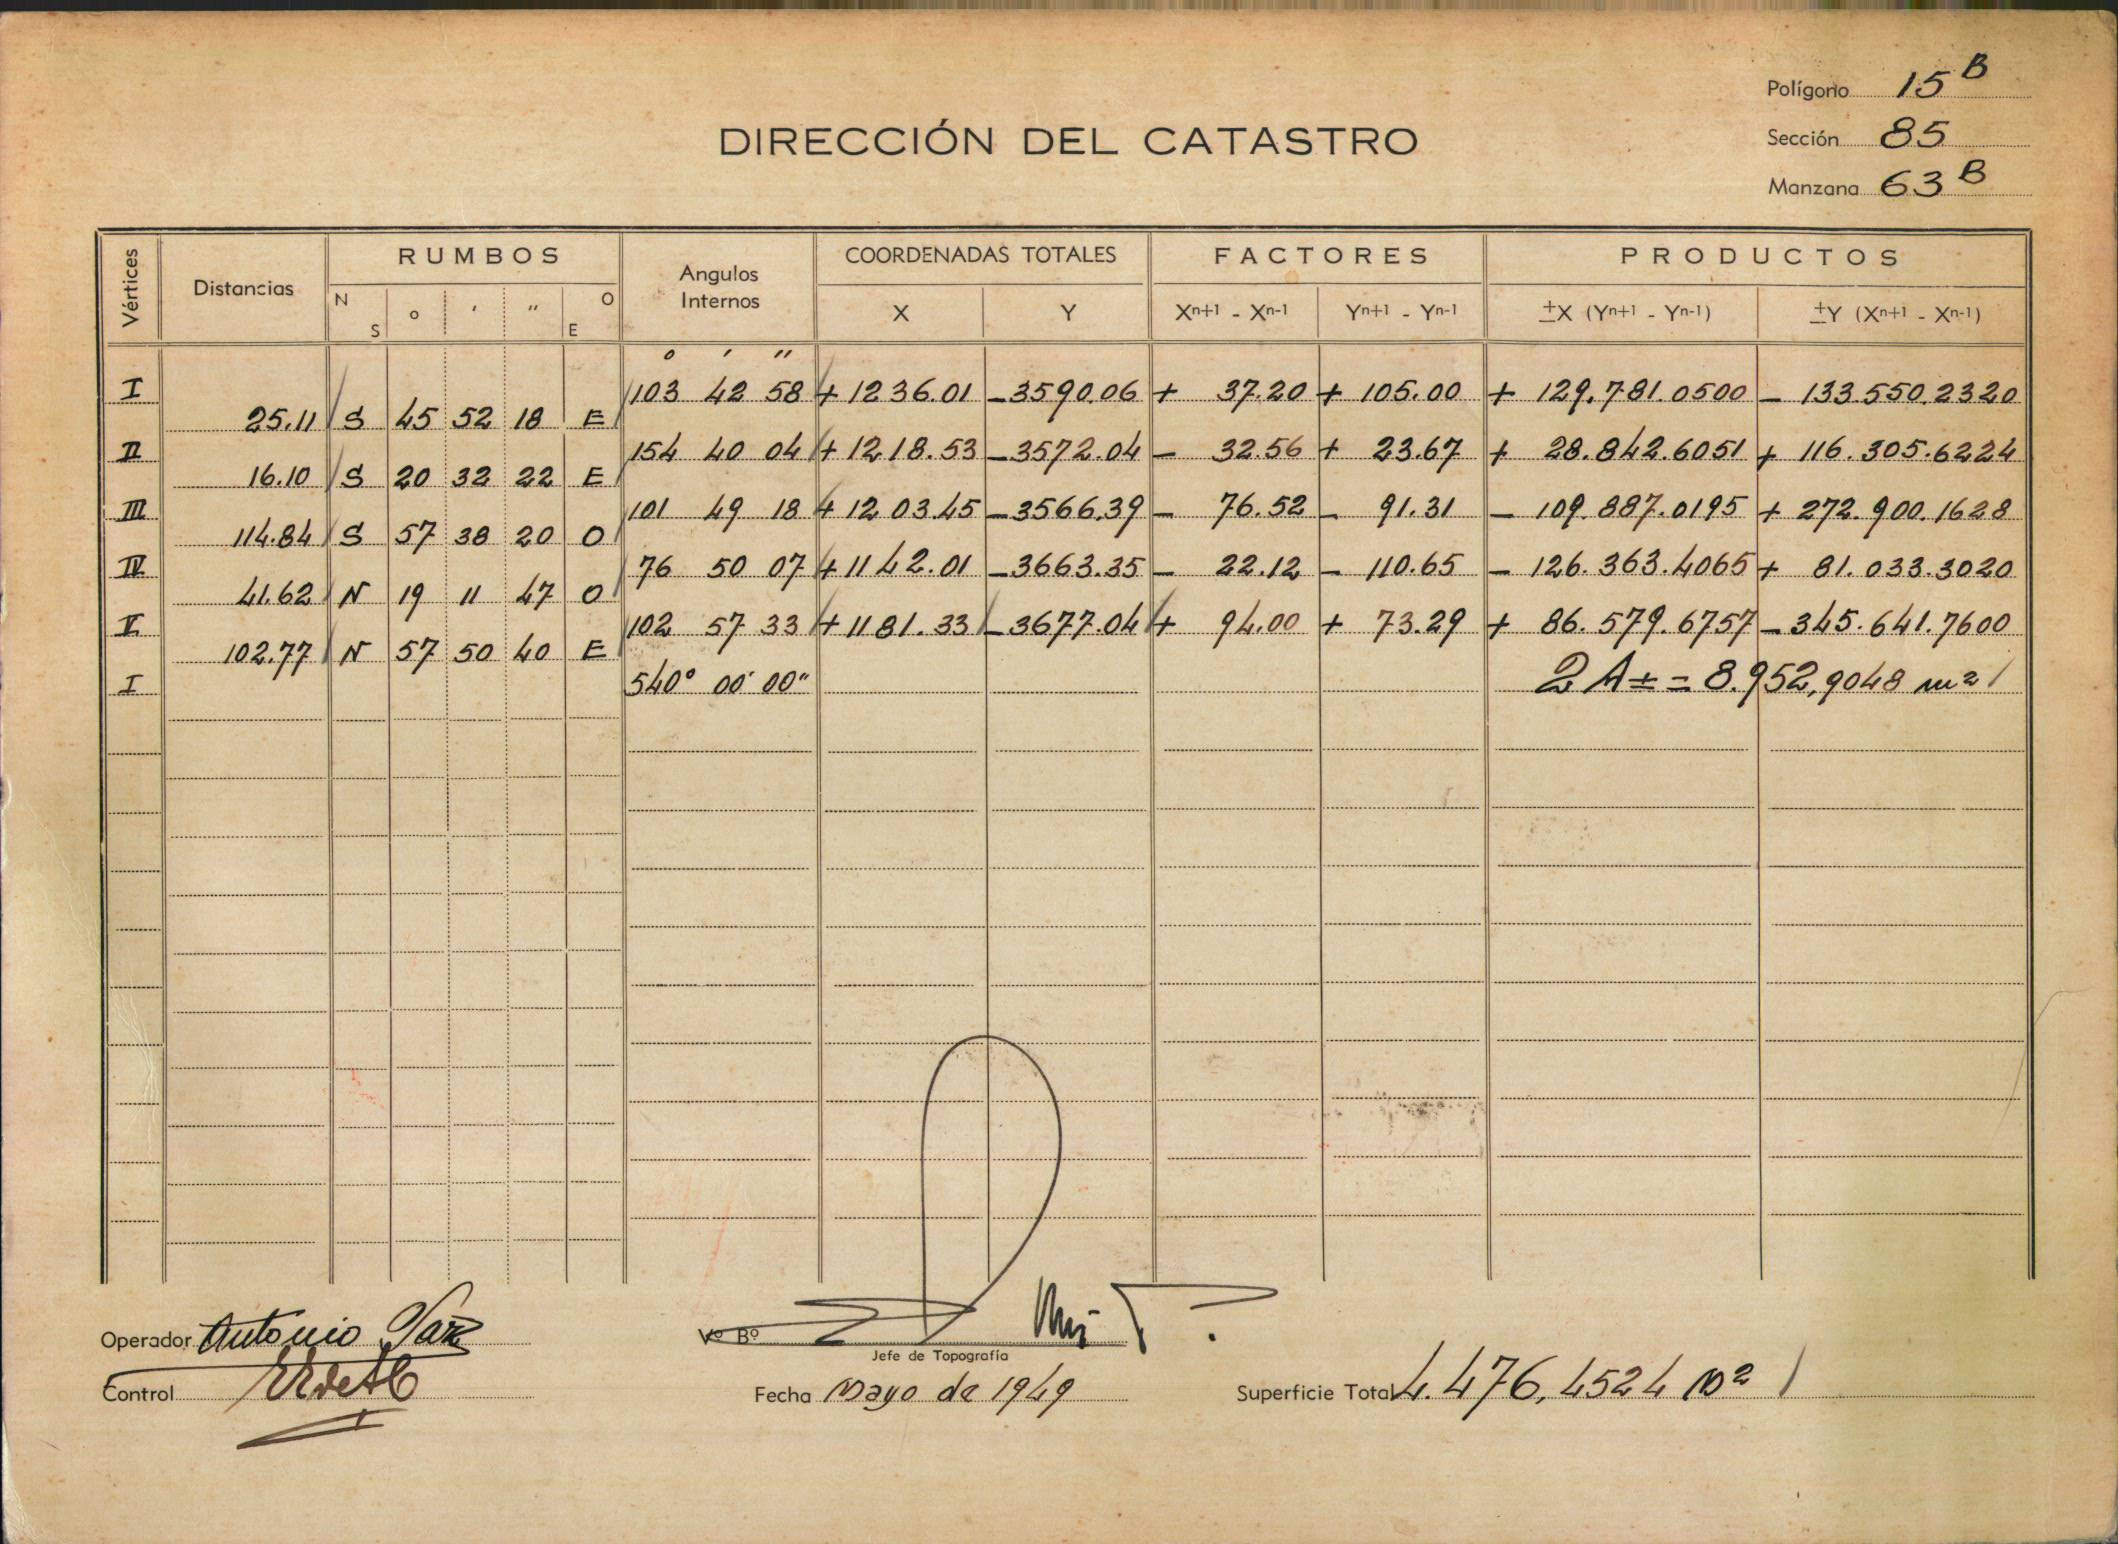 Polígono 15 B
DIRECCIÓN DEL CATASTRO
Sección 85
Manzana 63 B
Vértices Distancias RUMBOS Angulos Internos COORDENADAS TOTALES FACTORES PRODUCTOS
N S o ' " O E X Y Xn+1 - Xn-1 Yn+1 - Yn-1 ±X (Yn+1 - Yn-1) ±Y (Xn+1 - Xn-1)
o ' "
I 103 42 58 + 1236.01 - 3590.06 + 37.20 + 105.00 + 129.781.0500 - 133.550.2320
25.11 S 45 52 18 E
II 154 40 04 + 1218.53 - 3572.04 - 32.56 + 23.67 + 28.842.6051 + 116.305.6224
16.10 S 20 32 22 E
III 101 49 18 + 1203.45 - 3566.39 - 76.52 - 91.31 - 109.887.0195 + 272.900.1628
114.84 S 57 38 20 O
IV 76 50 07 + 1142.01 - 3663.35 - 22.12 - 110.65 - 126.363.4065 + 81.033.3020
41.62 N 19 11 47 O
V 102 57 33 + 1181.33 - 3677.04 + 94.00 + 73.29 + 86.579.6757 - 345.641.7600
102.77 N 57 50 40 E
I 540° 00' 00" 2 A ± = 8.952,9048 m2
Operador Antonio Vº Bº
Jefe de Topografía
Control Fecha Mayo de 1949 Superficie Total 4.476,4524 M2